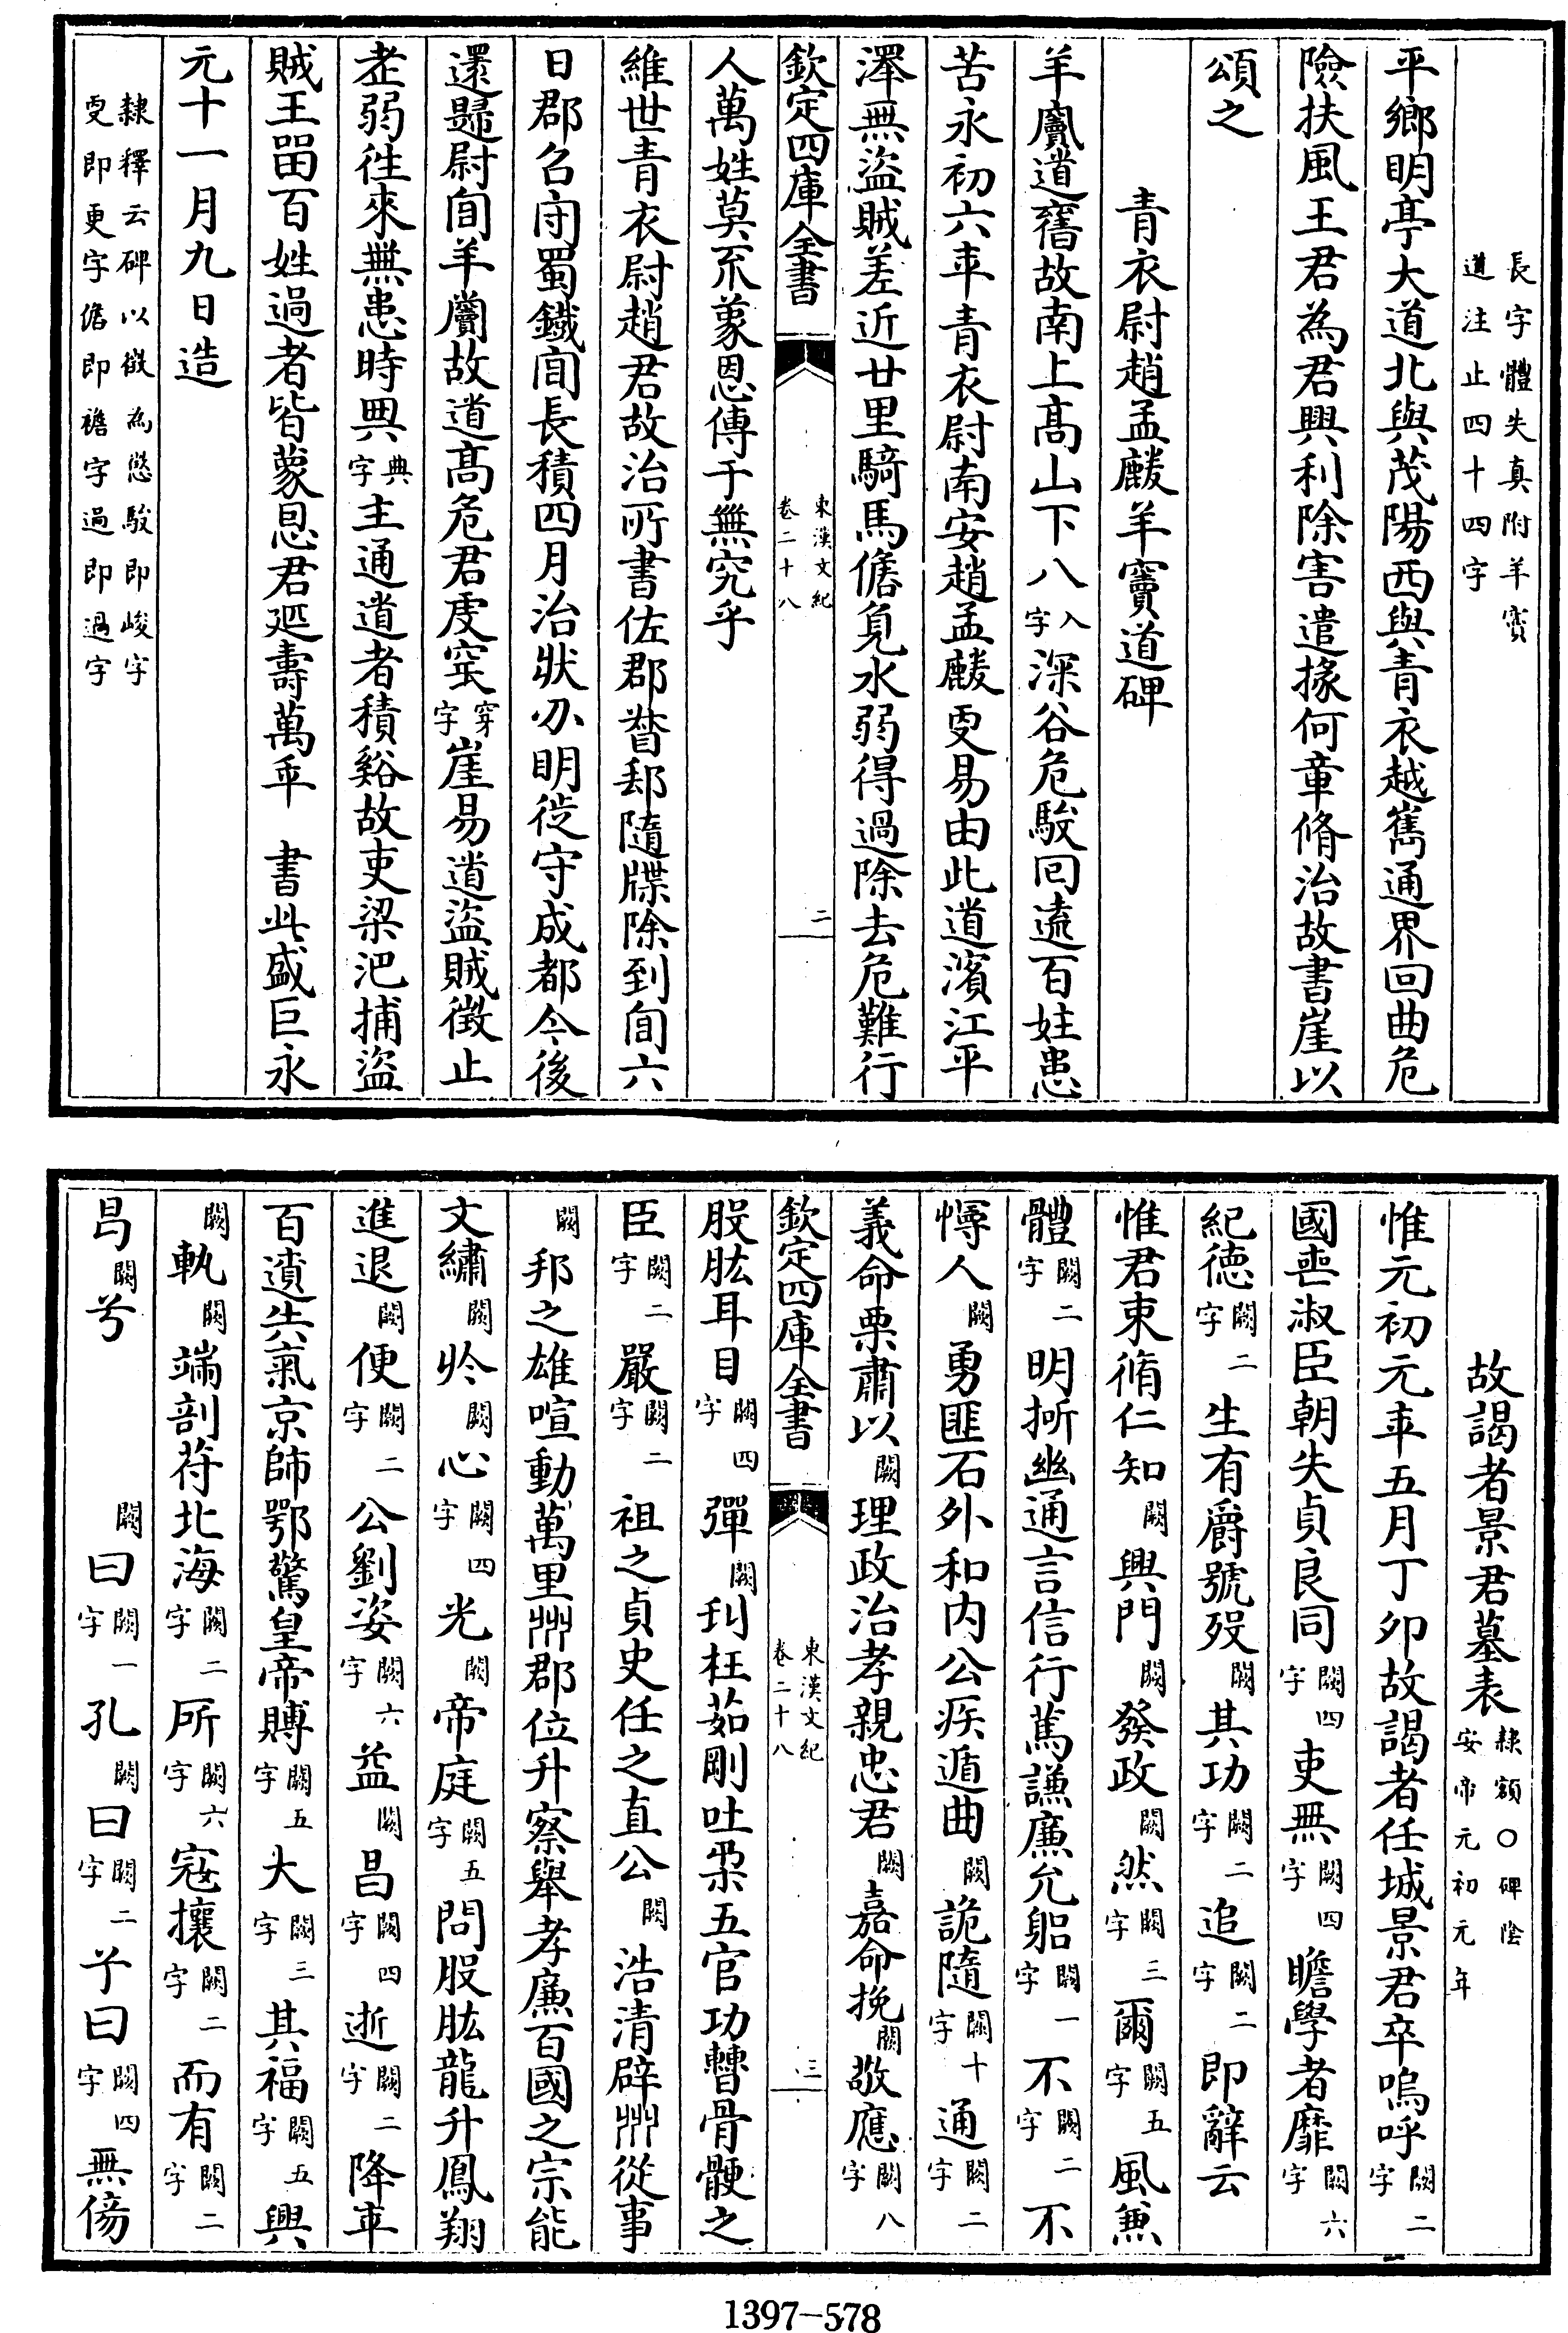 長字體失真附羊竇
道注止四十四字
平鄉明亭大道北與茂陽西與青衣越嶲通界回曲危
險扶風王君為君興利除害遣掾何章脩治故書崖以
頌之
青衣尉趙孟麟羊竇道碑
羊竇道舊故南上高山下八入字深谷危駿回遠百姓患
苦永初六年青衣尉南安趙孟麟更易由此道濱江平
澤無盜賊差近廿里騎馬儋負水弱得過除去危難行
欽定四庫全書
東漢文紀
卷二十八
二
人萬姓莫不蒙恩傳于無窮乎
維世青衣尉趙君故治所書佐郡督郵隨牒除到間六
日郡召守蜀鐵間長積四月治狀分明徙守成都令後
還歸尉間羊竇故道高危君虔穿穿字崖易道盜賊徵止
老弱往來無患時與典字主通道者積谿故吏梁汜捕盜
賊王留百姓過者皆蒙恩君延壽萬年　書此盛巨永
元十一月九日造
隸釋云碑以徵為懲駿即峻字
㪅即更字儋即襜字過即過字
故謁者景君墓表
隸額○碑陰
安帝元初元年
惟元初元年五月丁卯故謁者任城景君卒嗚呼闕二字
國喪淑臣朝失貞良同闕四字吏無闕四字瞻學者靡闕六字
紀德闕二字生有爵號歿闕其功闕二字追闕二字即辭云
惟君束脩仁知闕興門闕發政闕然闕三字爾闕五字風兼
體闕二字明析幽通言信行篤謙廉允躬闕一字不闕二字不
慱人闕勇匪石外和內公疾遁曲闕詭隨闕十字通闕二字
義命栗肅以闕理政治孝親忠君闕嘉命挽闕敬應闕八字
欽定四庫全書
東漢文紀
卷二十八
三
股肱耳目闕四字彈闕刋枉茹剛吐柔五官功曹骨骾之
臣闕二字嚴闕二字祖之貞史任之直公闕浩清辟州從事
闕邦之雄喧動萬里州郡位升察舉孝廉百國之宗能
文繡闕於闕心闕四字光闕帝庭闕五字問股肱龍升鳳翔
進退闕便闕二字公劉姿闕六字益闕昌闕四字逝闕二字降年
百遺失氣京師鄂驚皇帝賻闕五字大闕三字其福闕五字興
闕執闕端剖符北海闕二字所闕六字寇攘闕二字而有闕二字
昌闕兮　　　闕曰闕一字孔闕曰闕二字兮曰闕四字無傷
1397-578